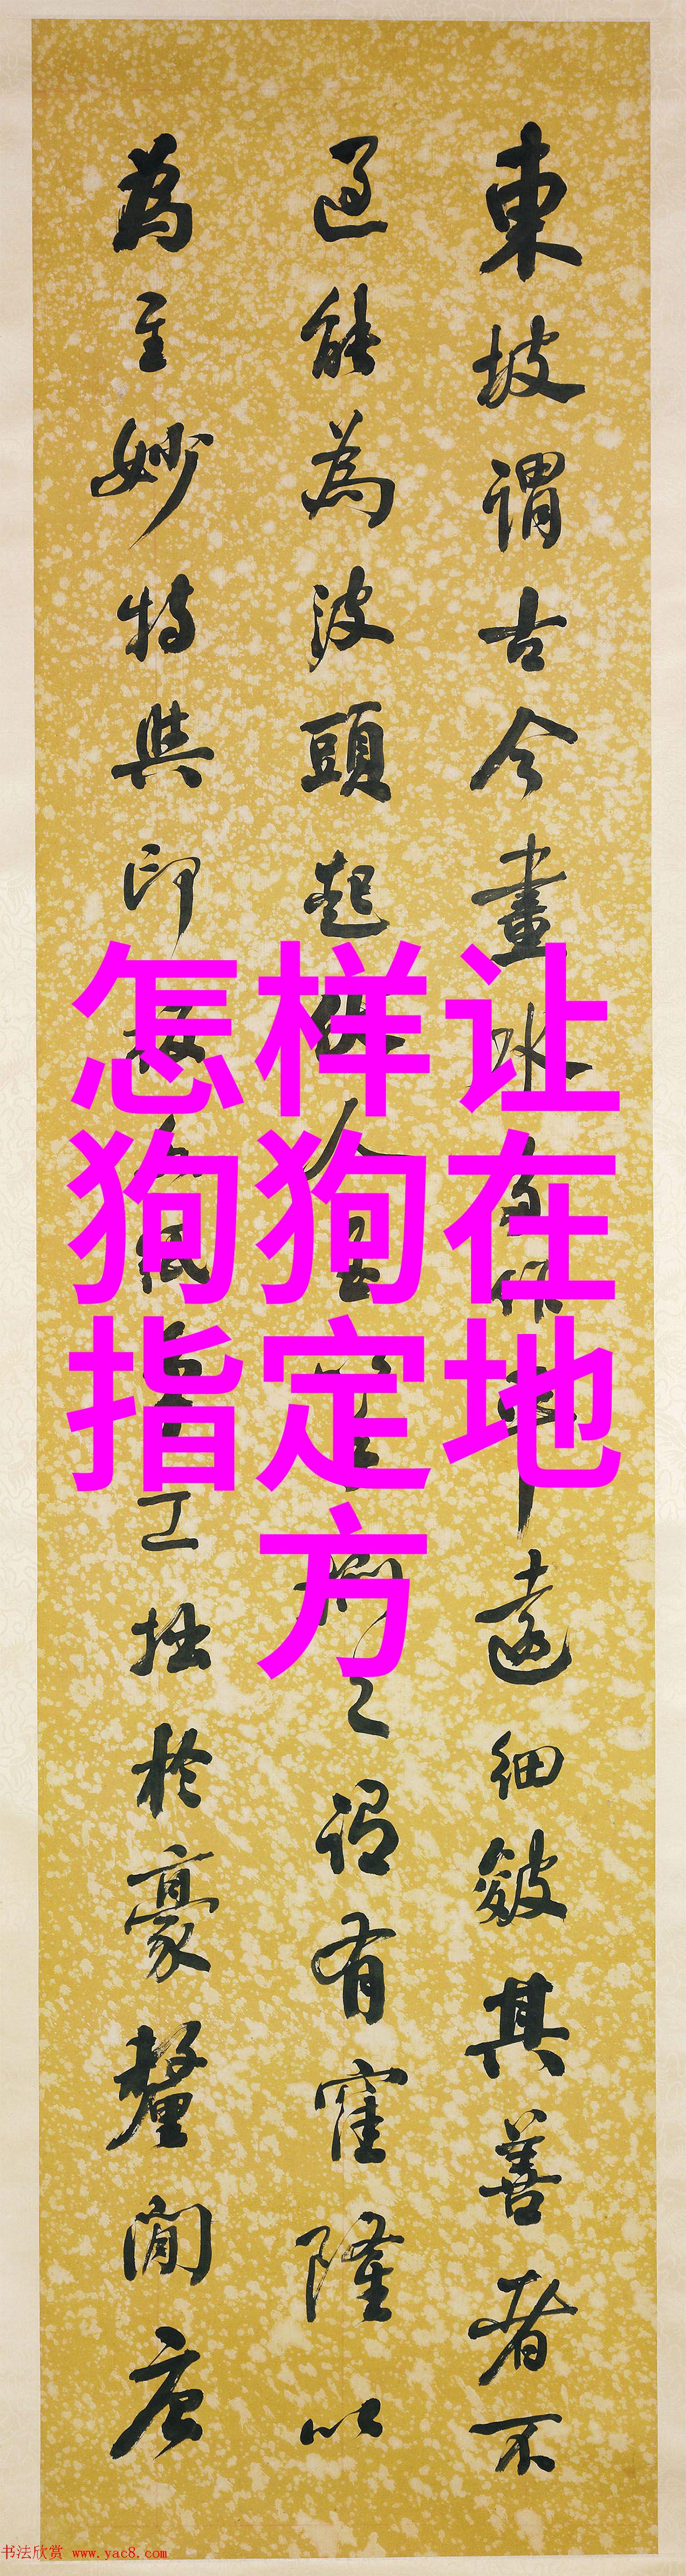 東坡謂古今畫水
遠細皴其善者不
過能為波頭起
人
之謂有窪隆以
為至妙特與印板
紙
工拙於豪釐間唐
怎样让
狗狗在
指定地
方
书法欣赏 www.yac8.com